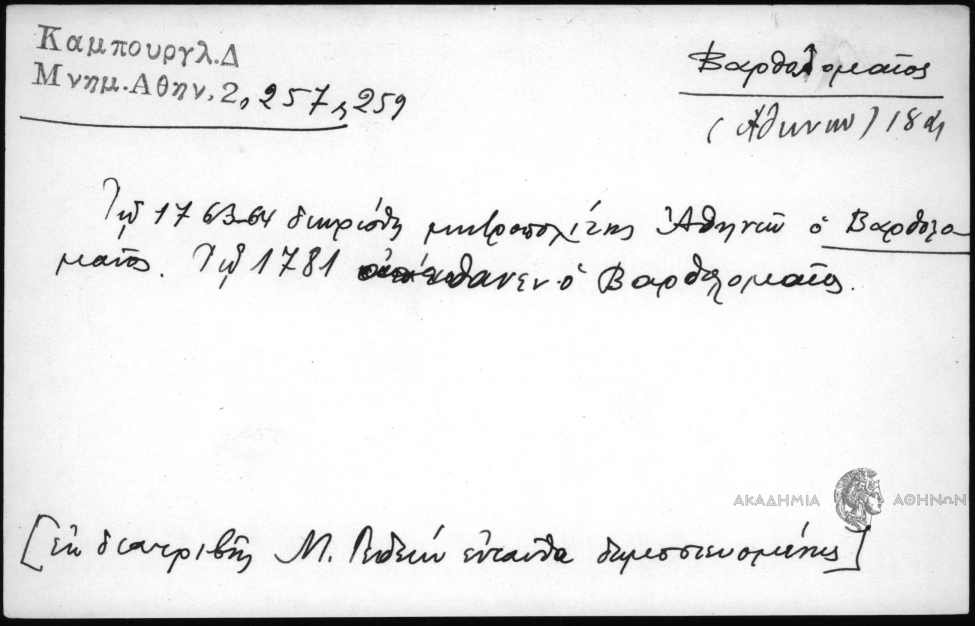 Καμπουργλ.Δ
Μνημ.Αθην. 2, 257, 259
Βαρθολομαῖος
(Ἀθηνῶν) 18 αι
Τῷ 1763-64 διωρίσθη μητροπολίτης Ἀθηνῶν ὁ Βαρθολο
μαῖος. Τῷ 1781 ἀπέθανεν ὁ Βαρθολομαῖος.
ΑΚΑΔΗΜΙΑ ΑΘΗΝΩΝ
[ἐκ διατριβῆς Μ. Γεδεὼν ἐνταῦθα δημοσιευομένης]